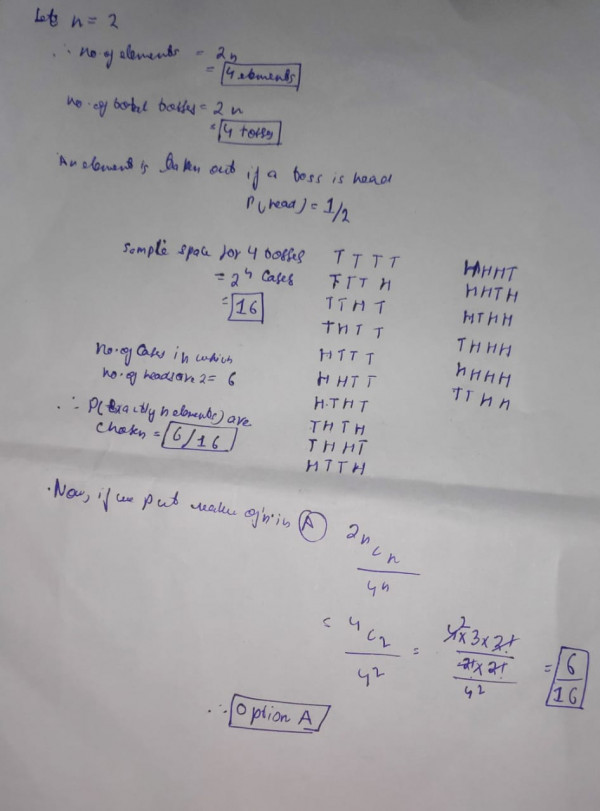 Lets n = 2
∴ no. of elements = 2n
= 4 elements
no. of total tosses = 2n
= 4 tosses
An element is taken out if a toss is head
P(head) = 1/2
Sample space for 4 tosses
= 2^4 cases
= 16
T T T T
T T T H
T T H T
T H T T
H T T T
H H T T
H T H T
T H T H
T H H T
H T T H
H H H T
H H T H
H T H H
T H H H
H H H H
T T H H
No. of cases in which
no. of heads are 2 = 6
∴ P(Exactly n elements) are
chosen = 6/16
Now, if we put value of 'n' in A
2n C n
4^n
= 4 C 2 = 4 x 3 x 2! = 6
4^2 2! x 2! 16
4^2
∴ Option A